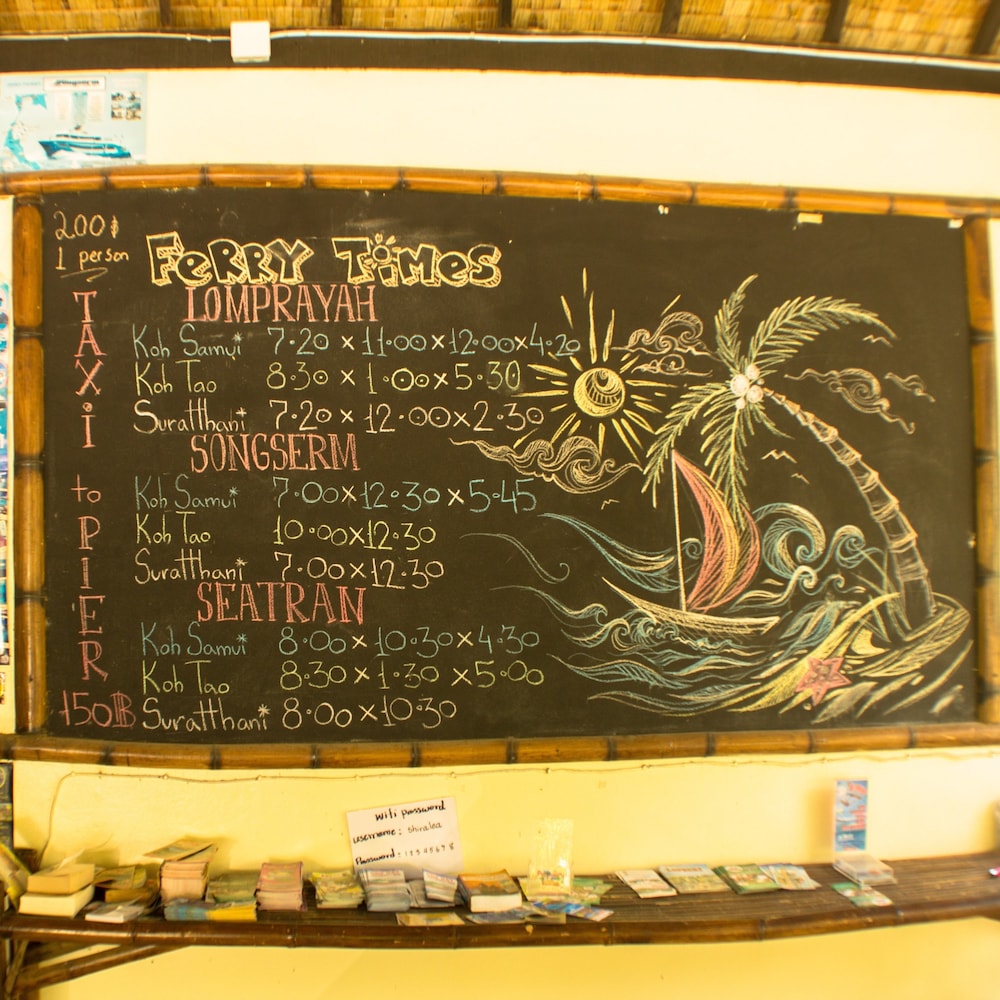 200฿
1 person
FeRRY TiMeS
LOMPRAYAH
Koh Samui* 7.20 × 11.00 × 12.00 × 4.20
Koh Tao 8.30 × 1.00 × 5.30
Suratthani* 7.20 × 12.00 × 2.30
SONGSERM
Koh Samui* 7.00 × 12.30 × 5.45
Koh Tao 10.00 × 12.30
Suratthani* 7.00 × 12.30
SEATRAN
Koh Samui* 8.00 × 10.30 × 4.30
Koh Tao 8.30 × 1.30 × 5.00
Suratthani* 8.00 × 10.30
TAXi
to
PIER
+50฿
Wifi password
username: shiralea
Password: 12345678